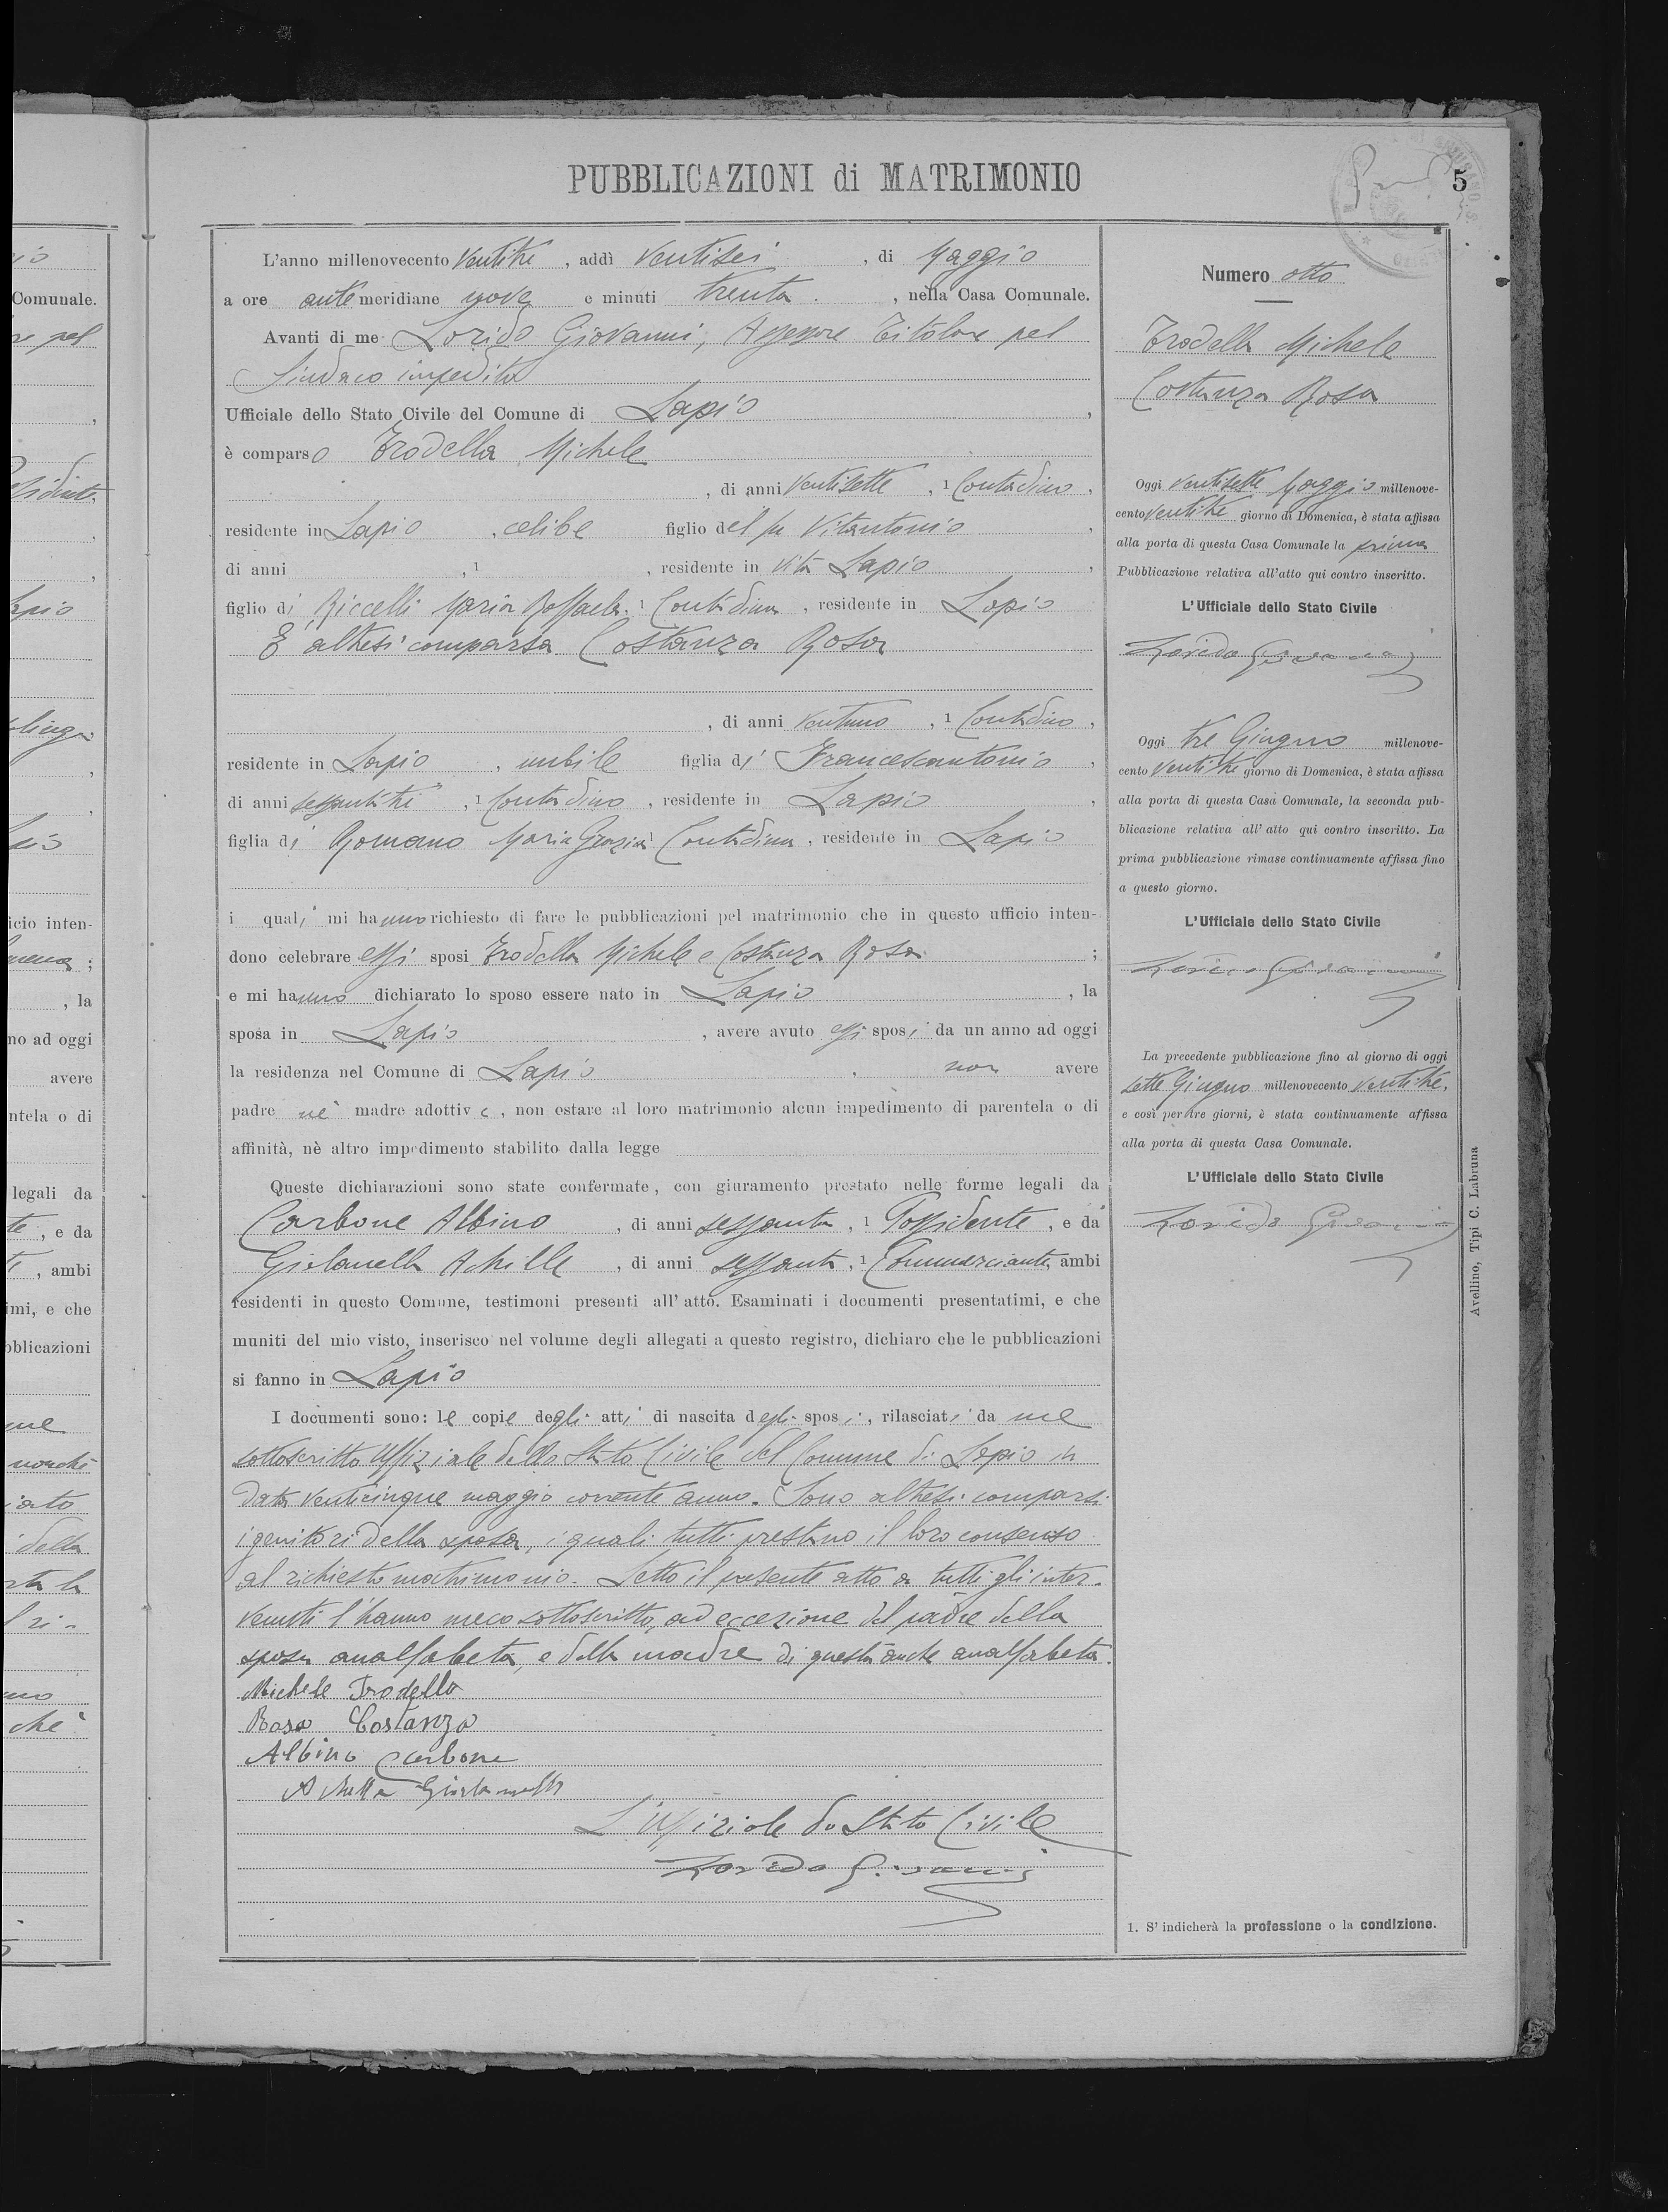 PUBBLICAZIONI di MATRIMONIO
5
L'anno millenovecento ventitre, addì ventisei, di Maggio
a ore antemeridiane nove e minuti trenta, nella Casa Comunale.
Avanti di me Lorido Giovanni, Assessore Titolare pel
Sindaco impedito
Ufficiale dello Stato Civile del Comune di Lapio,
è comparso Trodella Michele
, di anni ventisette, 1 Contadino,
residente in Lapio, celibe figlio del fu Vitantonio,
di anni , 1 , residente in vita Lapio,
figlio di Riccelli Maria Raffaela, 1 Contadina, residente in Lapio
È altresì comparsa Costanza Rosa
, di anni ventuno, 1 Contadino,
residente in Lapio, nubile figlia di Francescantonio,
di anni sessantitre, 1 Contadino, residente in Lapio,
figlia di Romano Maria Grazia 1 Contadina, residente in Lapio
i quali mi hanno richiesto di fare le pubblicazioni pel matrimonio che in questo ufficio inten-
dono celebrare essi sposi Trodella Michele e Costanza Rosa;
e mi hanno dichiarato lo sposo essere nato in Lapio, la
sposa in Lapio, avere avuto essi sposi da un anno ad oggi
la residenza nel Comune di Lapio, non avere
padre nè madre adottive, non ostare al loro matrimonio alcun impedimento di parentela o di
affinità, nè altro impedimento stabilito dalla legge
Queste dichiarazioni sono state confermate, con giuramento prestato nelle forme legali da
Carbone Albino, di anni sessanta, 1 Possidente, e da
Giolanella Achille, di anni sessanta, 1 Commerciante, ambi
residenti in questo Comune, testimoni presenti all'atto. Esaminati i documenti presentatimi, e che
muniti del mio visto, inserisco nel volume degli allegati a questo registro, dichiaro che le pubblicazioni
si fanno in Lapio
I documenti sono: le copie degli atti di nascita degli sposi, rilasciati da me
sottoscritto Uffiziale dello Stato Civile del Comune di Lapio in
data venticinque maggio corrente anno. Sono altresì comparsi
i genitori della sposa, i quali tutti prestano il loro consenso
al richiesto matrimonio. Letto il presente atto a tutti gli inter-
venuti l'hanno meco sottoscritto, ad eccezione del padre della
sposa analfabeta, e della madre di questa anche analfabeta.
Michele Trodella
Rosa Costanza
Albino Carbone
Achille Giolanella
L'Uffiziale do Stato Civile
Lorido Giovanni
Numero otto
Trodella Michele
Costanza Rosa
Oggi ventisette Maggio millenove-
cento ventitre giorno di Domenica, è stata affissa
alla porta di questa Casa Comunale la prima
Pubblicazione relativa all'atto qui contro inscritto.
L'Ufficiale dello Stato Civile
Lorido Giovanni
Oggi tre Giugno millenove-
cento ventitre giorno di Domenica, è stata affissa
alla porta di questa Casa Comunale, la seconda pub-
blicazione relativa all'atto qui contro inscritto. La
prima pubblicazione rimase continuamente affissa fino
a questo giorno.
L'Ufficiale dello Stato Civile
Lorido Giovanni
La precedente pubblicazione fino al giorno di oggi
sette Giugno millenovecento ventitre,
e così per tre giorni, è stata continuamente affissa
alla porta di questa Casa Comunale.
L'Ufficiale dello Stato Civile
Lorido Giovanni
1. S'indicherà la professione o la condizione.
Avellino, Tipi C. Labruna
Comunale.
icio inten-
, la
no ad oggi
avere
ntela o di
legali da
, e da
, ambi
imi, e che
bblicazioni
me
nonchè
della
chè